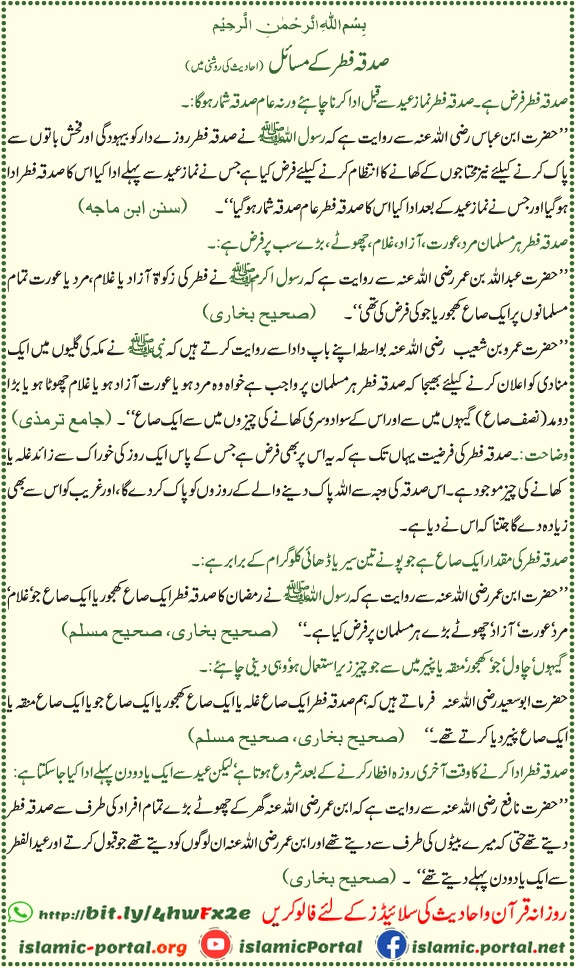 بِسْمِ اللهِ الرَّحْمٰنِ الرَّحِيْمِ
صدقہ فطر کے مسائل (احادیث کی روشنی میں)
صدقہ فطر فرض ہے۔ صدقہ فطر نماز عید سے قبل ادا کرنا چاہئے ورنہ عام صدقہ شمار ہوگا:۔
’’حضرت ابن عباس رضی اللہ عنہ سے روایت ہے کہ رسول اللہ ﷺ نے صدقہ فطر روزے دار کو بیہودگی اور فحش باتوں سے
پاک کرنے کیلئے نیز محتاجوں کے کھانے کا انتظام کرنے کیلئے فرض کیا ہے جس نے نماز عید سے پہلے ادا کیا اس کا صدقہ فطر ادا
ہوگیا اور جس نے نماز عید کے بعد ادا کیا اس کا صدقہ فطر عام صدقہ شمار ہوگیا‘‘۔ (سنن ابن ماجه)
صدقہ فطر ہر مسلمان مرد، عورت، آزاد، غلام، چھوٹے، بڑے سب پر فرض ہے:۔
’’حضرت عبداللہ بن عمر رضی اللہ عنہ سے روایت ہے کہ رسول اکرم ﷺ نے فطر کی زکوٰۃ آزاد یا غلام، مرد یا عورت تمام
مسلمانوں پر ایک صاع کھجور یا جو کی فرض کی تھی‘‘۔ (صحیح بخاری)
’’حضرت عمرو بن شعیب رضی اللہ عنہ بواسطہ اپنے باپ دادا سے روایت کرتے ہیں کہ نبی ﷺ نے مکہ کی گلیوں میں ایک
منادی کو اعلان کرنے کیلئے بھیجا کہ صدقہ فطر ہر مسلمان پر واجب ہے خواہ وہ مرد ہو یا عورت آزاد ہو یا غلام چھوٹا ہو یا بڑا
دو مد (نصف صاع) گیہوں میں سے اور اس کے سوا دوسری کھانے کی چیزوں میں سے ایک صاع‘‘۔ (جامع ترمذی)
وضاحت:۔ صدقہ فطر کی فرضیت یہاں تک ہے کہ یہ اس پر بھی فرض ہے جس کے پاس ایک روز کی خوراک سے زائد غلہ یا
کھانے کی چیز موجود ہے۔ اس صدقہ کی وجہ سے اللہ پاک دینے والے کے روزوں کو پاک کردے گا، اور غریب کو اس سے بھی
زیادہ دے گا جتنا کہ اس نے دیا ہے۔
صدقہ فطر کی مقدار ایک صاع ہے جو پونے تین سیر یا ڈھائی کلوگرام کے برابر ہے:۔
’’حضرت ابن عمر رضی اللہ عنہ سے روایت ہے کہ رسول اللہ ﷺ نے رمضان کا صدقہ فطر ایک صاع کھجور یا ایک صاع جو‘ غلام‘
مرد‘ عورت‘ آزاد‘ چھوٹے بڑے ہر مسلمان پر فرض کیا ہے۔‘‘ (صحیح بخاری، صحیح مسلم)
گیہوں‘ چاول‘ جو‘ کھجور‘ منقہ یا پنیر میں سے جو چیز زیر استعمال ہو وہی دینی چاہئے:۔
حضرت ابو سعید رضی اللہ عنہ فرماتے ہیں کہ ہم صدقہ فطر ایک صاع غلہ یا ایک صاع کھجور یا ایک صاع جو یا ایک صاع منقہ یا
ایک صاع پنیر دیا کرتے تھے۔‘‘ (صحیح بخاری، صحیح مسلم)
صدقہ فطر ادا کرنے کا وقت آخری روزہ افطار کرنے کے بعد شروع ہوتا ہے‘ لیکن عید سے ایک یا دو دن پہلے ادا کیا جاسکتا ہے:
’’حضرت نافع رضی اللہ عنہ سے روایت ہے کہ ابن عمر رضی اللہ عنہ گھر کے چھوٹے بڑے تمام افراد کی طرف سے صدقہ فطر
دیتے تھے حتیٰ کہ میرے بیٹوں کی طرف سے دیتے تھے اور ابن عمر رضی اللہ عنہ ان لوگوں کو دیتے تھے جو قبول کرتے اور عید الفطر
سے ایک یا دو دن پہلے دیتے تھے‘‘۔ (صحیح بخاری)
روزانہ قرآن و احادیث کی سلائیڈز کے لئے فالو کریں http://bit.ly/4hwFx2e
islamic-portal.org islamicPortal islamic.portal.net